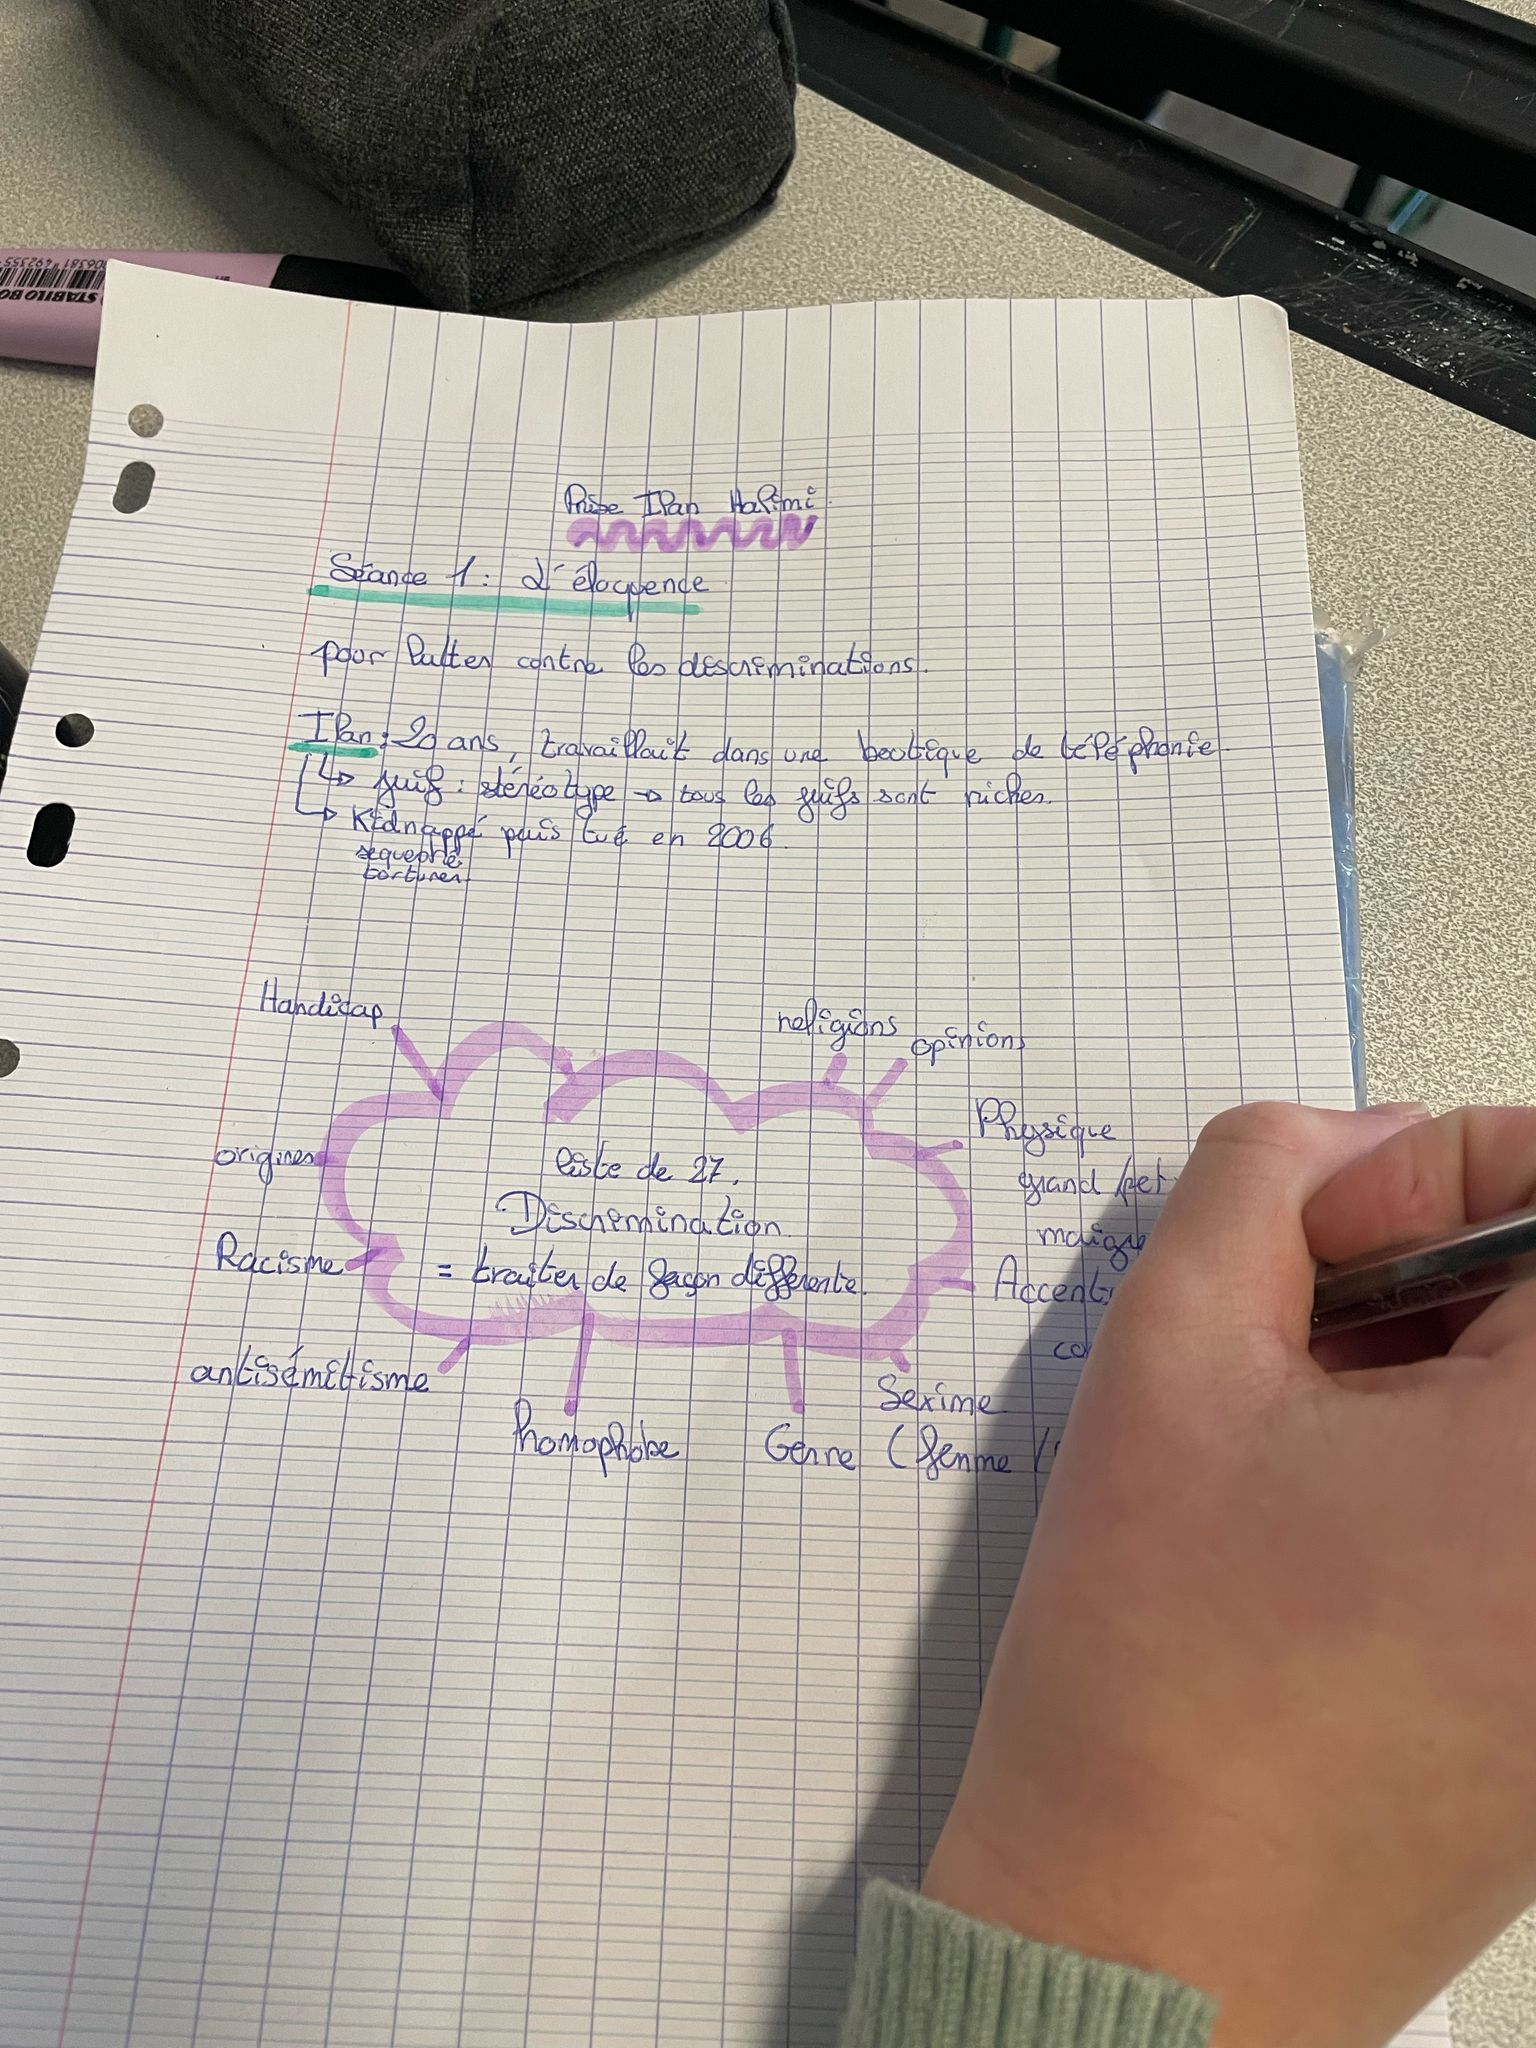 STABILO BO
06381 492355
Prise Ilan Halimi
Séance 1: d'éloquence
pour lutter contre les discriminations.
Ilan: 20 ans, travaillait dans une boutique de téléphonie
juif: stéréotype → tous les juifs sont riches.
Kidnappé puis tué en 2006.
torturer
Handicap
religions
opinions
Physique
grand/pet
maigre
Accent
co
origines
liste de 27.
Discrimination
= traiter de façon différente.
Racisme
antisémitisme
homophobe
Sexime
Genre (femme /